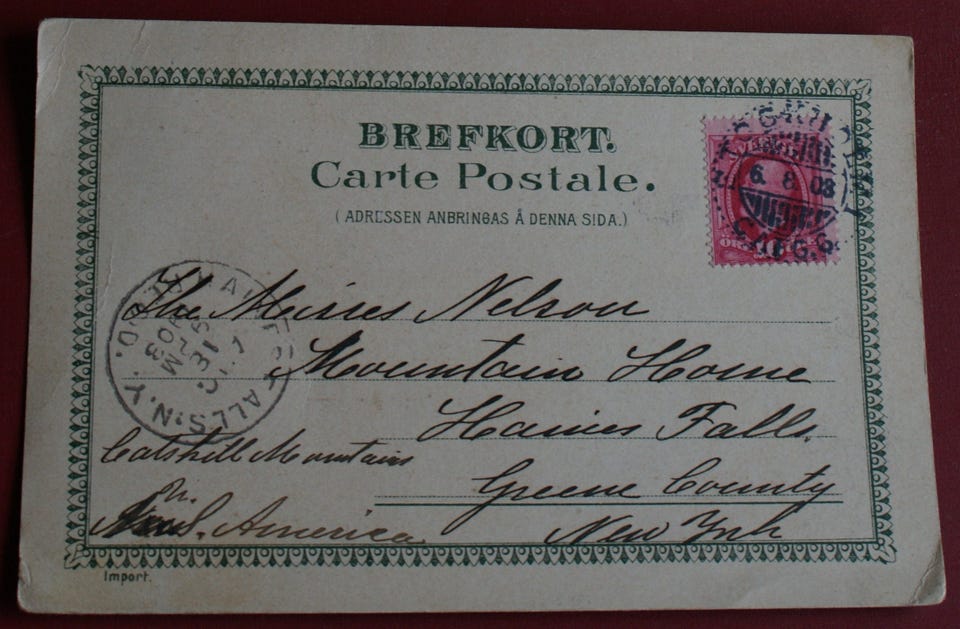 BREFKORT.
Carte Postale.
(ADRESSEN ANBRINGAS Å DENNA SIDA.)
6. 8 03
The Misses Nelson
Mountain Home
Haines Falls.
Greene County
New York
Catskill Mountains
America
FALLS. N.Y.
REC'D.
Import.